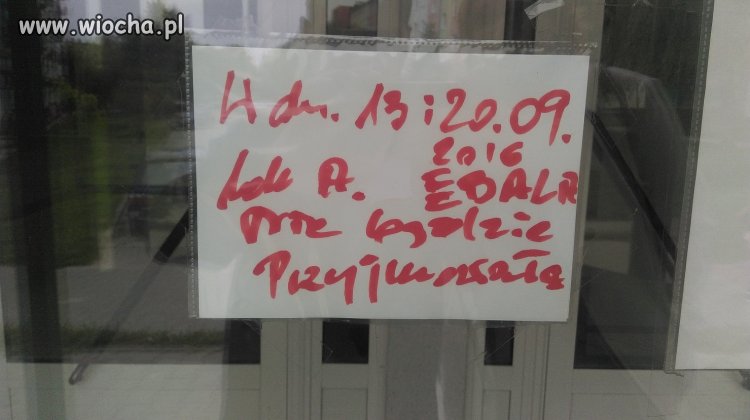 www.wiocha.pl
W dn. 13 i 20.09.
2016
lek A. EBALA
nie będzie
Przyjmowała